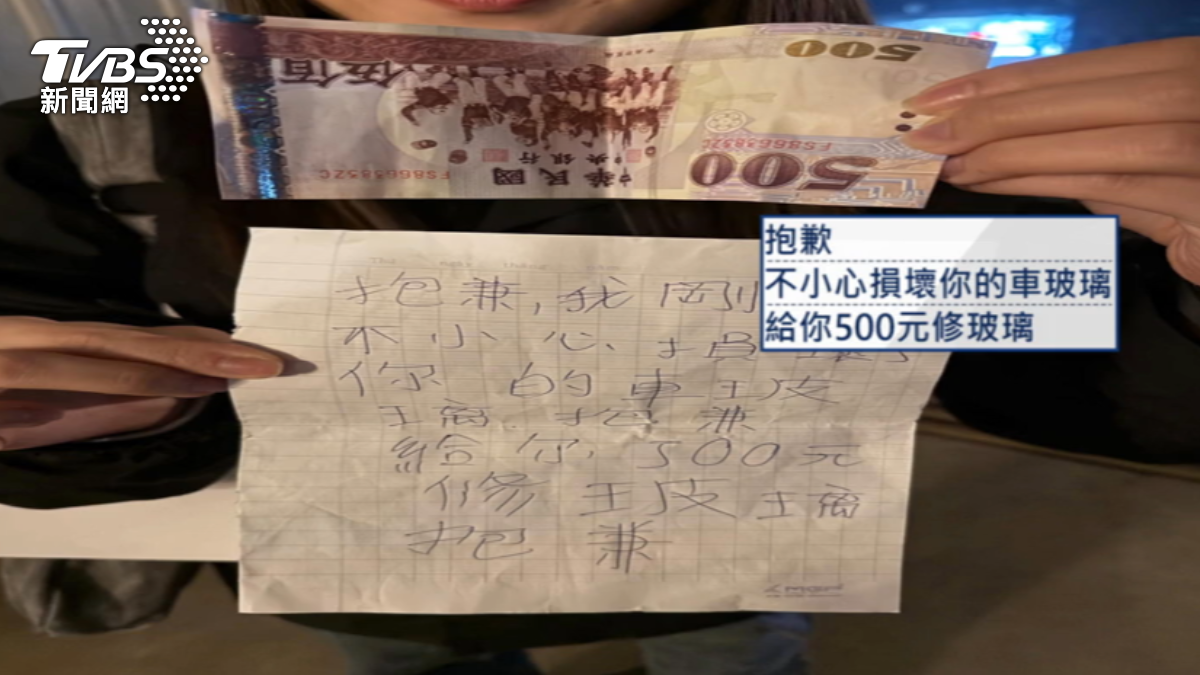 TVBS
新聞網
500
伍佰
500
中央銀行
中華民國
抱歉
不小心損壞你的車玻璃
給你500元修玻璃
抱兼,我剛
不小心損
你的車玻
璃.抱兼
給你500元
修玻璃
抱兼